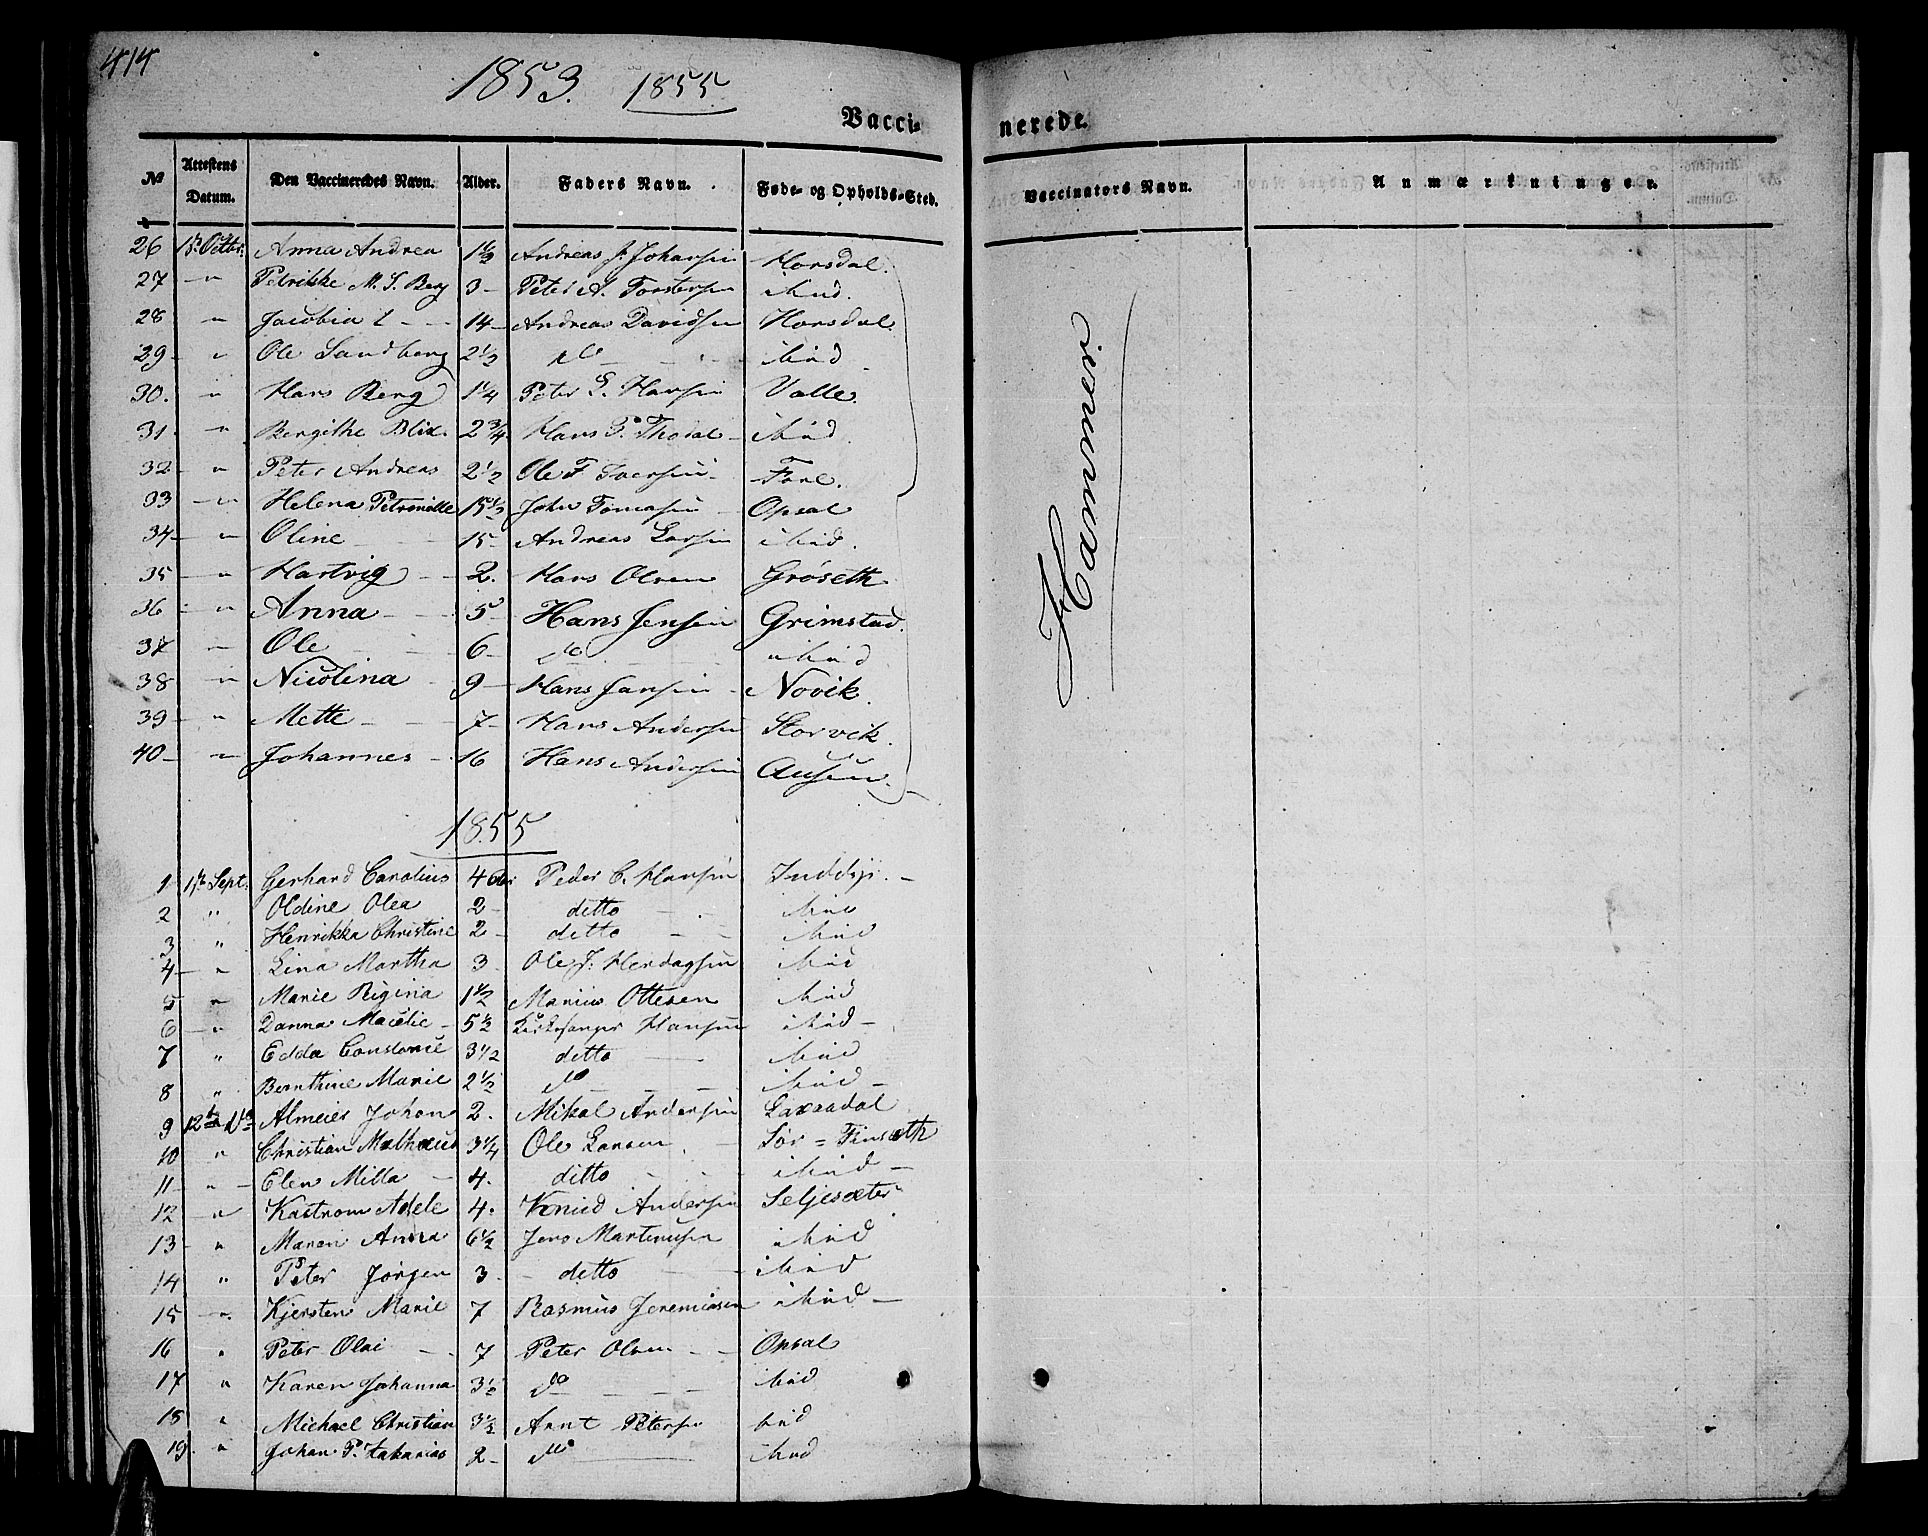 414
1853. 1855
Vacci- nerede.
No Attestens Datum. Den Vaccineredes Navn. Alder. Faders Navn. Føde- og Opholds-Sted. Vaccinators Navn. Anmærkninger.
26 Octbr. Anna Andrea 1½ Andreas J. Johansen Horsdal.
27 " Petrikke M. S. Berg 3 Peter A. ibid.
28 " Jacobia 14 Andreas Davidsen Horsdal.
29 " Ole Sandberg 2½ do ibid
30. " Hans Berg 1¼ Peter Hansen Valle.
31 " Bergithe Blix 2¾ Hans P. Thodal ibid.
32 " Peter Andreas 2½ Ole Fore.
33 " Helena Petronille 15½ John Opsal
34 " Oline 15 Andreas Larsen ibid.
35 " Hartvig 2. Hans Olsen Grøseth
36 " Anna 5 Hans Jensen Grimstad.
37 " Ole 6 do ibid
38 " Nicolina 9 Hans Jansen Novik.
39 " Mette 7 Hans Andersen Storvik.
40 " Johannes 16 Hans Andersen Ausen.
Hammer
1855
1 Sept. Gerhard Carolius 4 Peder C. Hansen Inddyr.
2 " Oldine Olea 2 ditto ibid
3 " Henrikka Christine 2 ditto ibid
4 " Lina Martha 3 Ole J. ibid
5 " Marie Regina 1½ Marius Ottesen ibid
6 " Danna 5½ Kirkesanger Hansen ibid
7 " Edda 3½ ditto ibid
8 " Bernthine Marie 2½ do ibid
9 12te Johan 2. Mikal Andersen Laxaadal
10 " Christian Mathæus 3¼ Ole Larsen Sør = Finsæth
11 " Elen Milla 4. ditto ibid
12 " Adele 4. Knud Andersen Seljesæter
13 " Maren Anna 6½ Jens Martinusen ibid
14 " Peter Jørgen 3 ditto ibid
15 " Kjersten Marie 7 Rasmus Jeremiasen ibid
16 " Peter Olai 7 Peter Olsen Opsal
17 " Karen Johanna 3½ do ibid
18 " Michael Christian 3½ Arnt Petersen ibid
19. " Johan P. Zakarias 2 do ibid